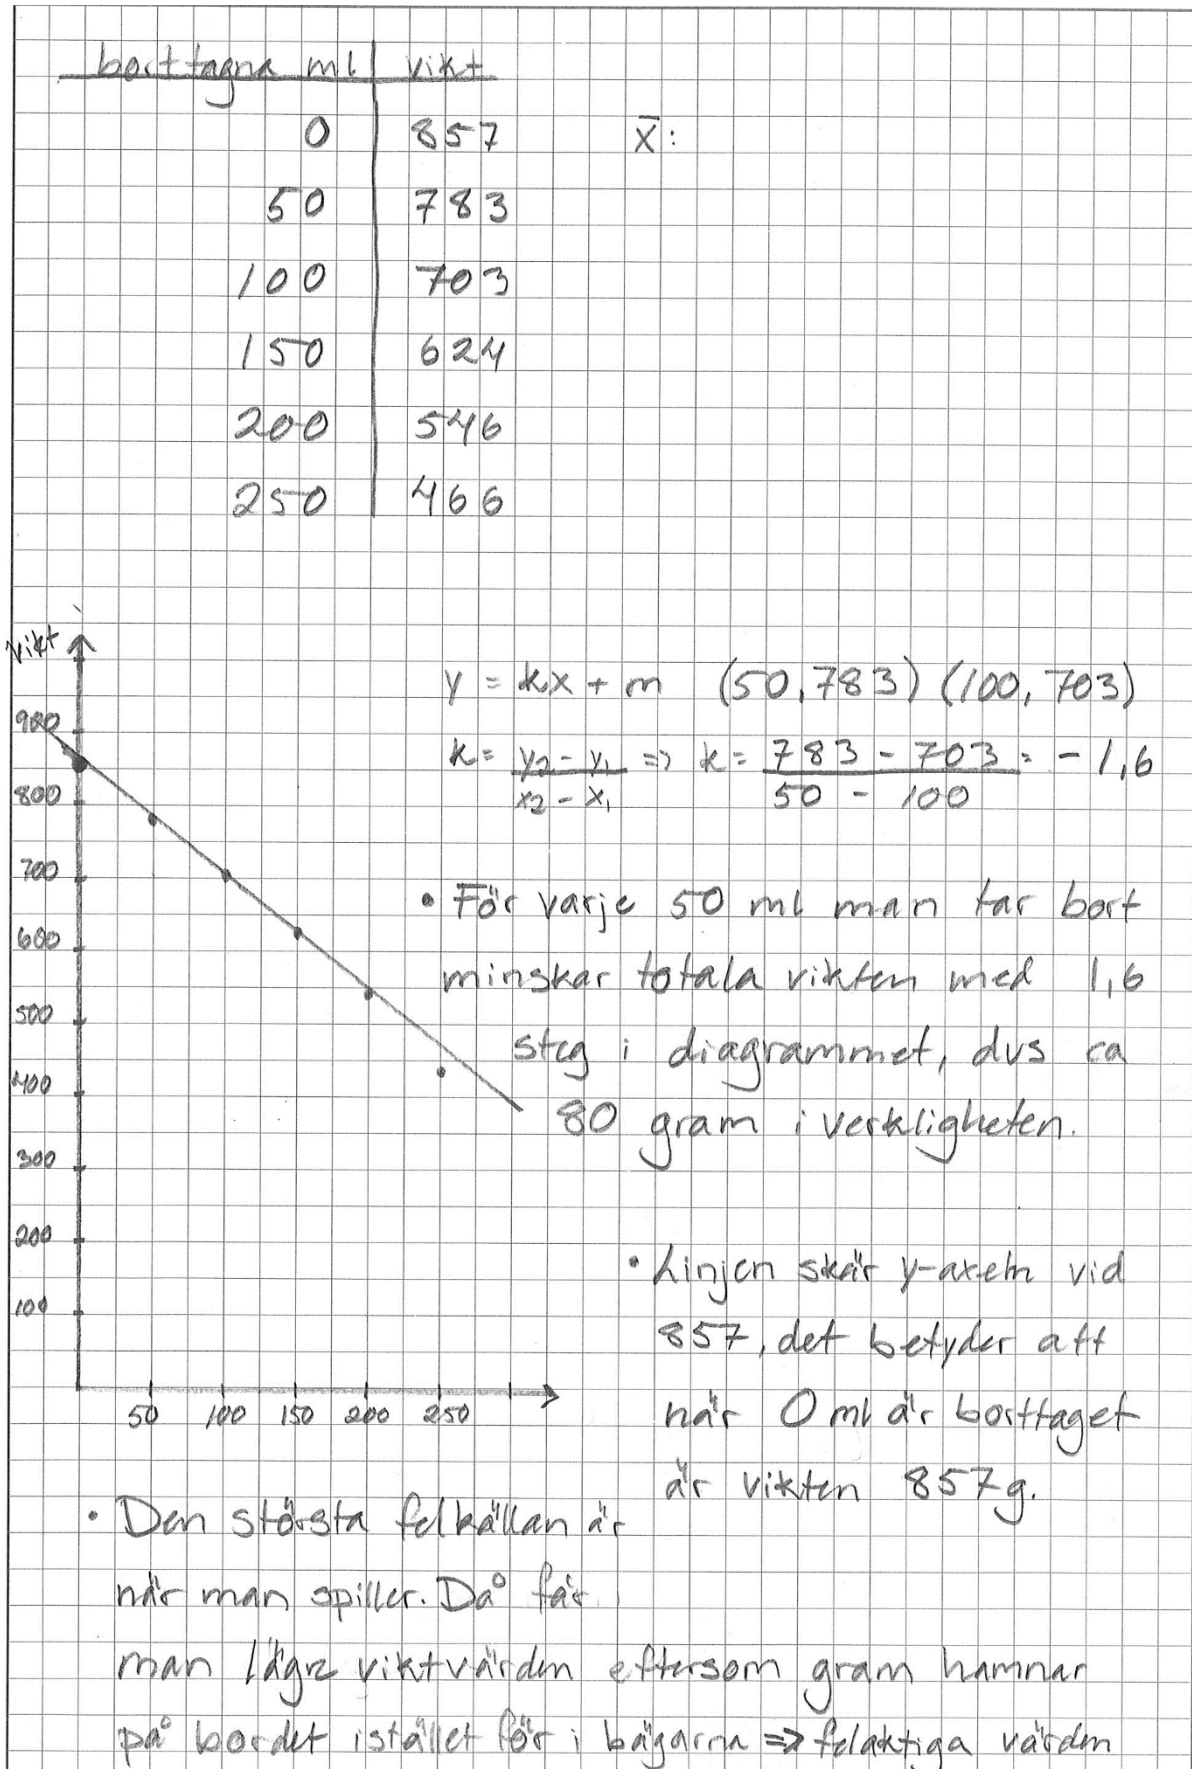 borttagna ml vikt
0 857 x̄:
50 783
100 703
150 624
200 546
250 466
vikt
900
800
700
600
500
400
300
200
100
50 100 150 200 250
y = kx + m (50,783) (100,703)
k = y2 - y1 / x2 - x1 => k = 783 - 703 / 50 - 100 = -1,6
• För varje 50 ml man tar bort
minskar totala vikten med 1,6
steg i diagrammet, dvs ca
80 gram i verkligheten.
• Linjen skär y-axeln vid
857, det betyder att
när 0 ml är borttaget
är vikten 857g.
• Den största felkällan är
när man spiller. Då får
man lägre viktvärden eftersom gram hamnar
på bordet istället för i bägarna => felaktiga värden